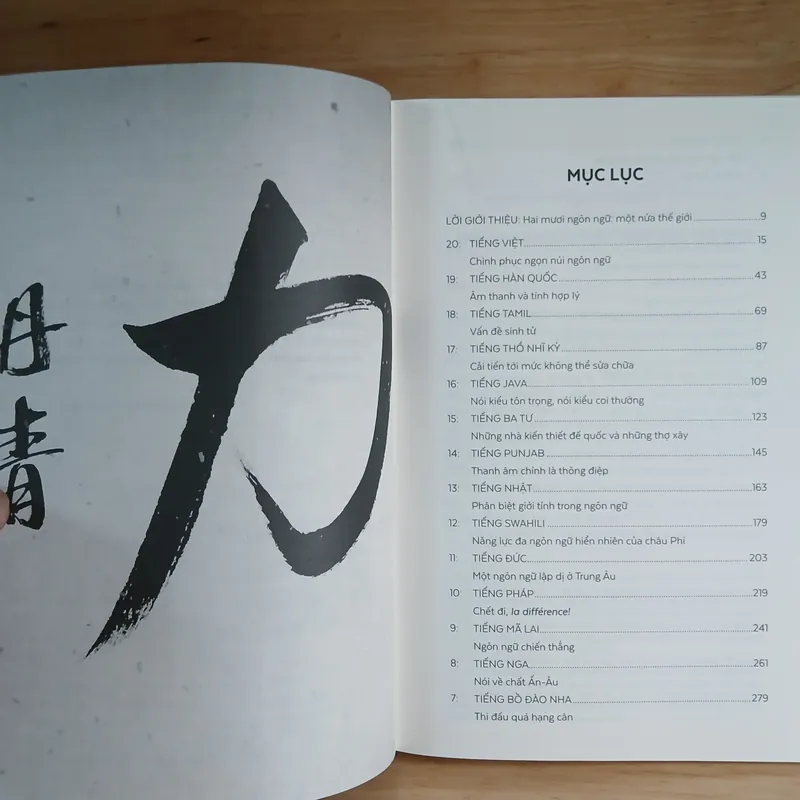 力
丹
青
MỤC LỤC
LỜI GIỚI THIỆU: Hai mươi ngôn ngữ: một nửa thế giới 9
20: TIẾNG VIỆT 15
Chinh phục ngọn núi ngôn ngữ
19: TIẾNG HÀN QUỐC 43
Âm thanh và tính hợp lý
18: TIẾNG TAMIL 69
Vấn đề sinh tử
17: TIẾNG THỔ NHĨ KỲ 87
Cải tiến tới mức không thể sửa chữa
16: TIẾNG JAVA 109
Nói kiểu tôn trọng, nói kiểu coi thường
15: TIẾNG BA TƯ 123
Những nhà kiến thiết đế quốc và những thợ xây
14: TIẾNG PUNJAB 145
Thanh âm chính là thông điệp
13: TIẾNG NHẬT 163
Phân biệt giới tính trong ngôn ngữ
12: TIẾNG SWAHILI 179
Năng lực đa ngôn ngữ hiển nhiên của châu Phi
11: TIẾNG ĐỨC 203
Một ngôn ngữ lập dị ở Trung Âu
10: TIẾNG PHÁP 219
Chết đi, la différence!
9: TIẾNG MÃ LAI 241
Ngôn ngữ chiến thắng
8: TIẾNG NGA 261
Nói về chất Ấn-Âu
7: TIẾNG BỒ ĐÀO NHA 279
Thi đấu quá hạng cân